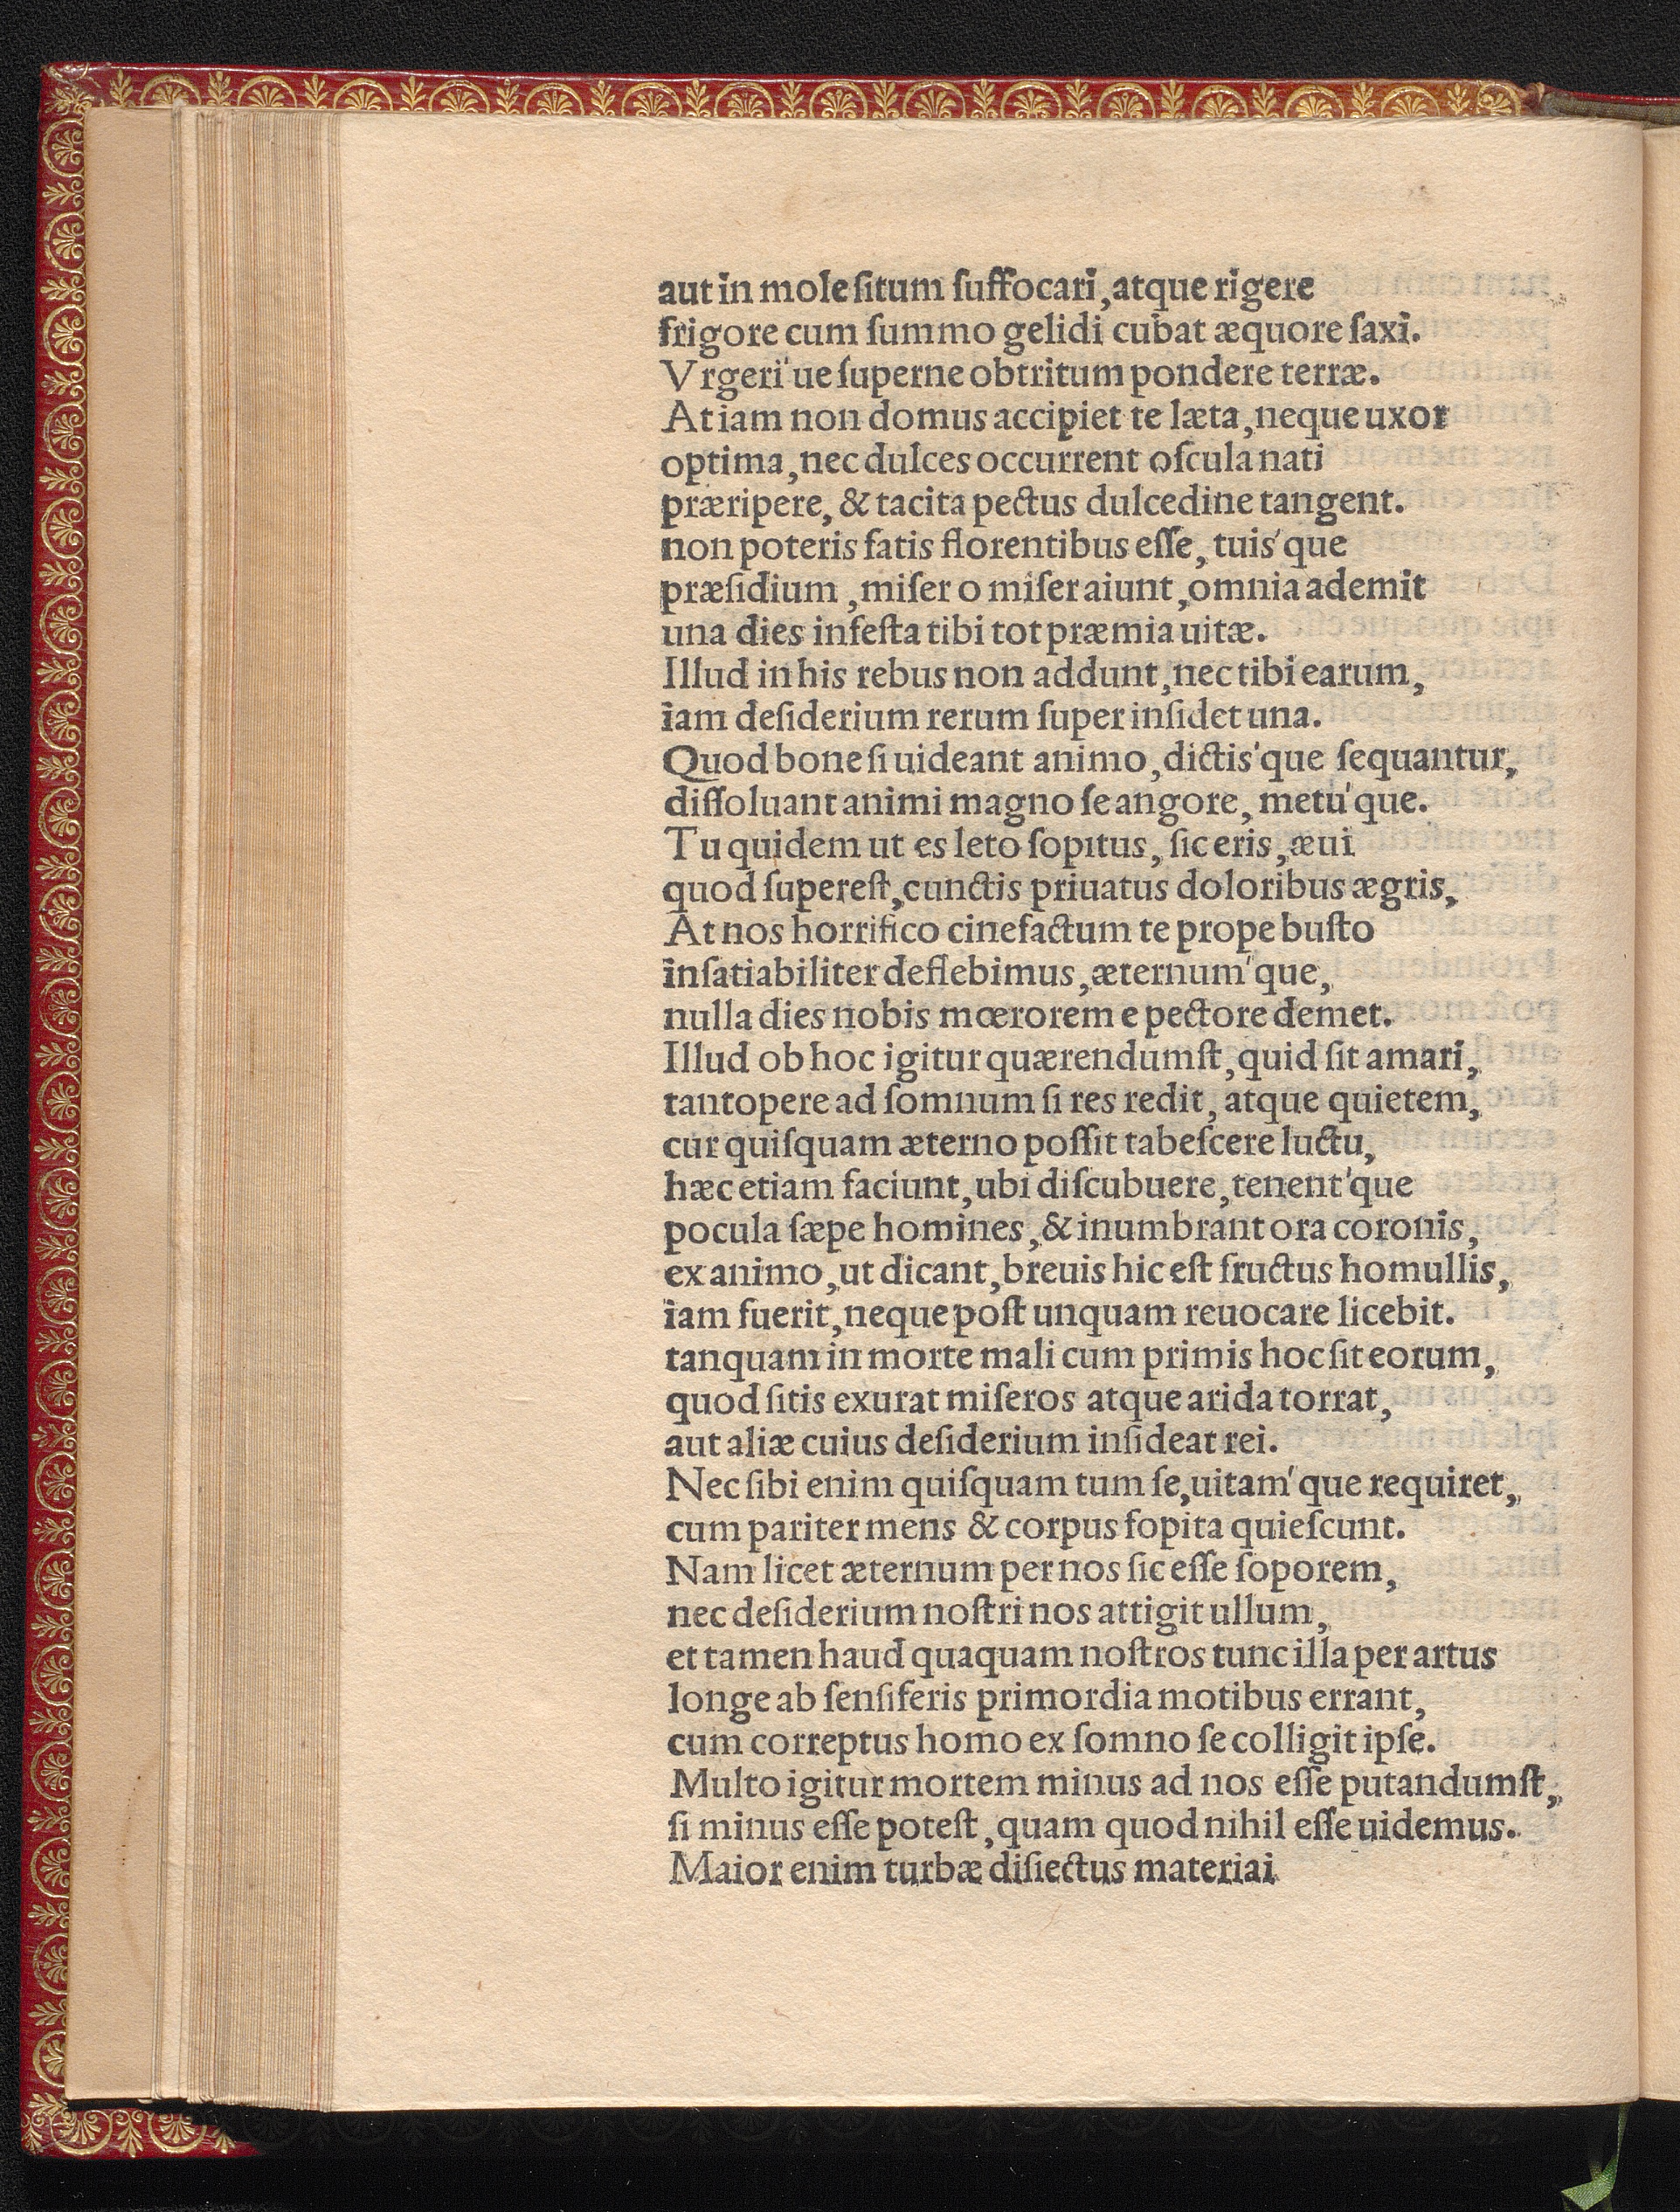 aut in mole ſitum ſuffocari, atque rigere
frigore cum ſummo gelidi cubat æquore ſaxi.
Vrgeri'ue ſuperne obtritum pondere terræ.
At iam non domus accipiet te læta, neque uxor
optima, nec dulces occurrent oſcula nati
præripere, & tacita pectus dulcedine tangent.
non poteris fatis florentibus eſſe, tuis'que
præſidium, miſer o miſer aiunt, omnia ademit
una dies infeſta tibi tot præmia uitæ.
Illud in his rebus non addunt, nec tibi earum,
iam deſiderium rerum ſuper inſidet una.
Quod bone ſi uideant animo, dictis'que ſequantur,
diſſoluant animi magno ſe angore, metu'que.
Tu quidem ut es leto ſopitus, ſic eris, æui
quod ſupereſt, cunctis priuatus doloribus ægris,
At nos horrifico cinefactum te prope buſto
inſatiabiliter deflebimus, æternum'que,
nulla dies nobis mœrorem e pectore demet.
Illud ob hoc igitur quærendumſt, quid ſit amari,
tantopere ad ſomnum ſi res redit, atque quietem,
cur quiſquam æterno poſſit tabeſcere luctu,
hæc etiam faciunt, ubi diſcubuere, tenent'que
pocula ſæpe homines, & inumbrant ora coronis,
ex animo, ut dicant, breuis hic eſt fructus homullis,
iam fuerit, neque poſt unquam reuocare licebit.
tanquam in morte mali cum primis hoc ſit eorum,
quod ſitis exurat miſeros atque arida torrat,
aut aliæ cuius deſiderium inſideat rei.
Nec ſibi enim quiſquam tum ſe, uitam'que requiret,
cum pariter mens & corpus ſopita quieſcunt.
Nam licet æternum per nos ſic eſſe ſoporem,
nec deſiderium noſtri nos attigit ullum,
et tamen haud quaquam noſtros tunc illa per artus
longe ab ſenſiferis primordia motibus errant,
cum correptus homo ex ſomno ſe colligit ipſe.
Multo igitur mortem minus ad nos eſſe putandumſt,
ſi minus eſſe poteſt, quam quod nihil eſſe uidemus.
Maior enim turbæ diſiectus materiai